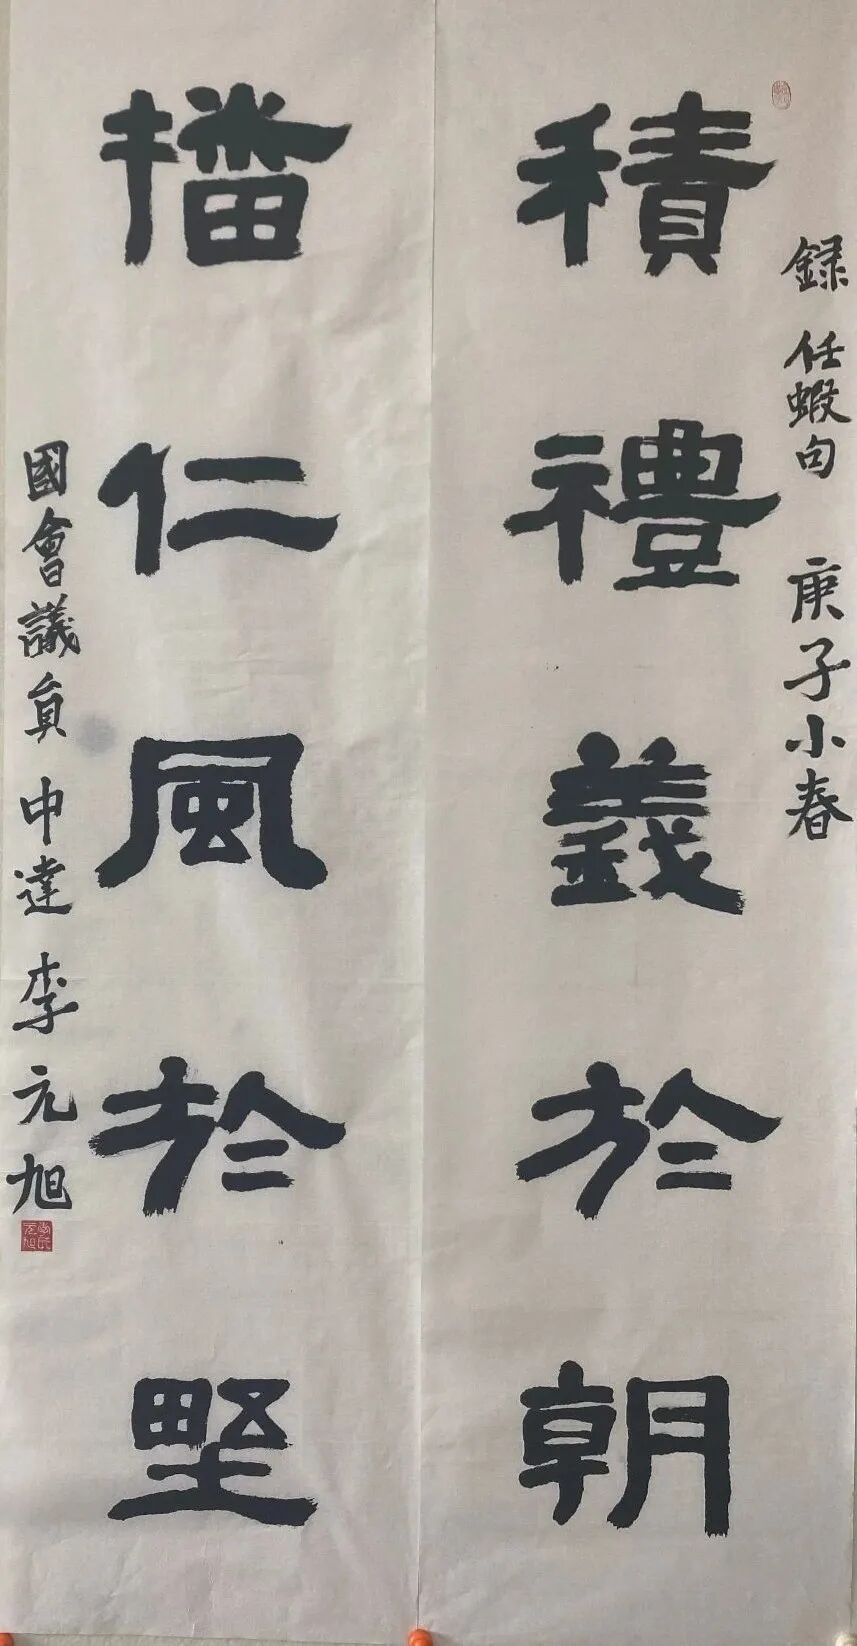 錄 任蝦句 庚子小春
積禮義於朝
播仁風於野
國會議員 中達 李元旭